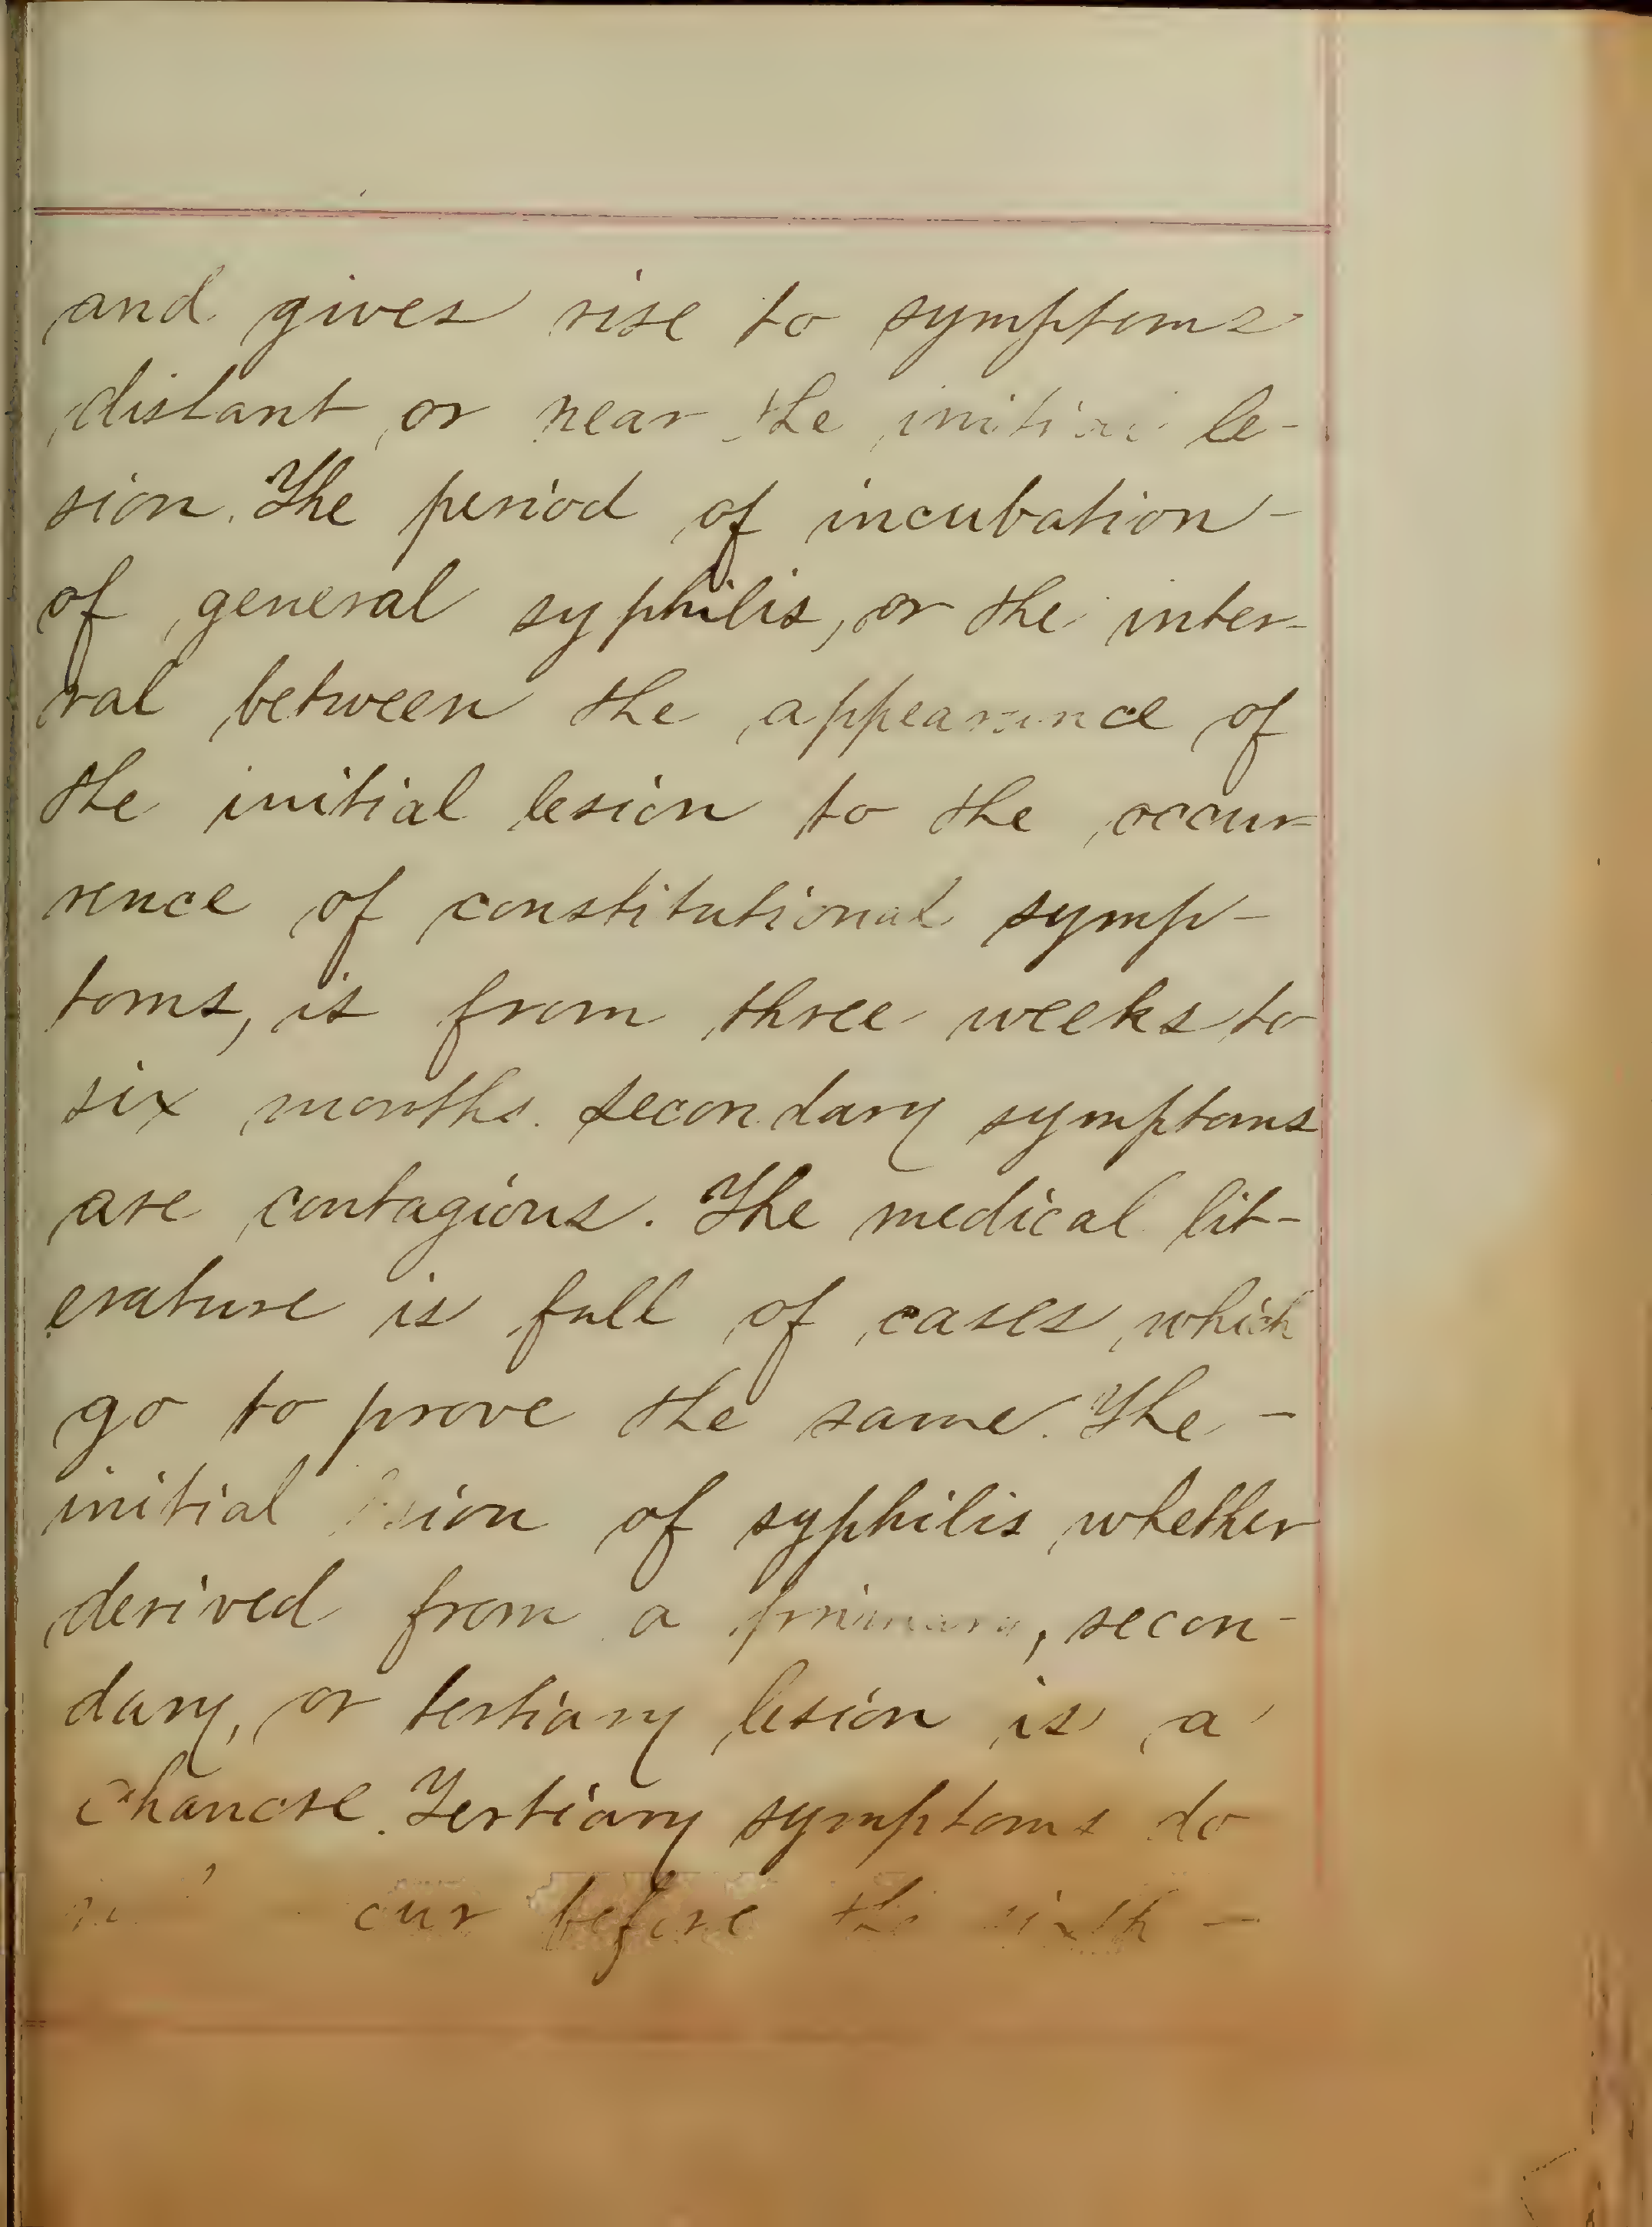 and gives rise to symptoms
distant or near the initial le-
sion. The period of incubation-
of general syphilis, or the inter-
val between the appearance of
the initial lesion to the occur-
rence of constitutional symp-
toms, is from three weeks to
six months. secondary symptoms
are contagious. The medical lit-
erature is full of cases which
go to prove the same. The -
initial lesion of syphilis whether
derived from a primary, secon-
dary, or tertiary lesion is a
chancre. Tertiary symptoms do
before the sixth -